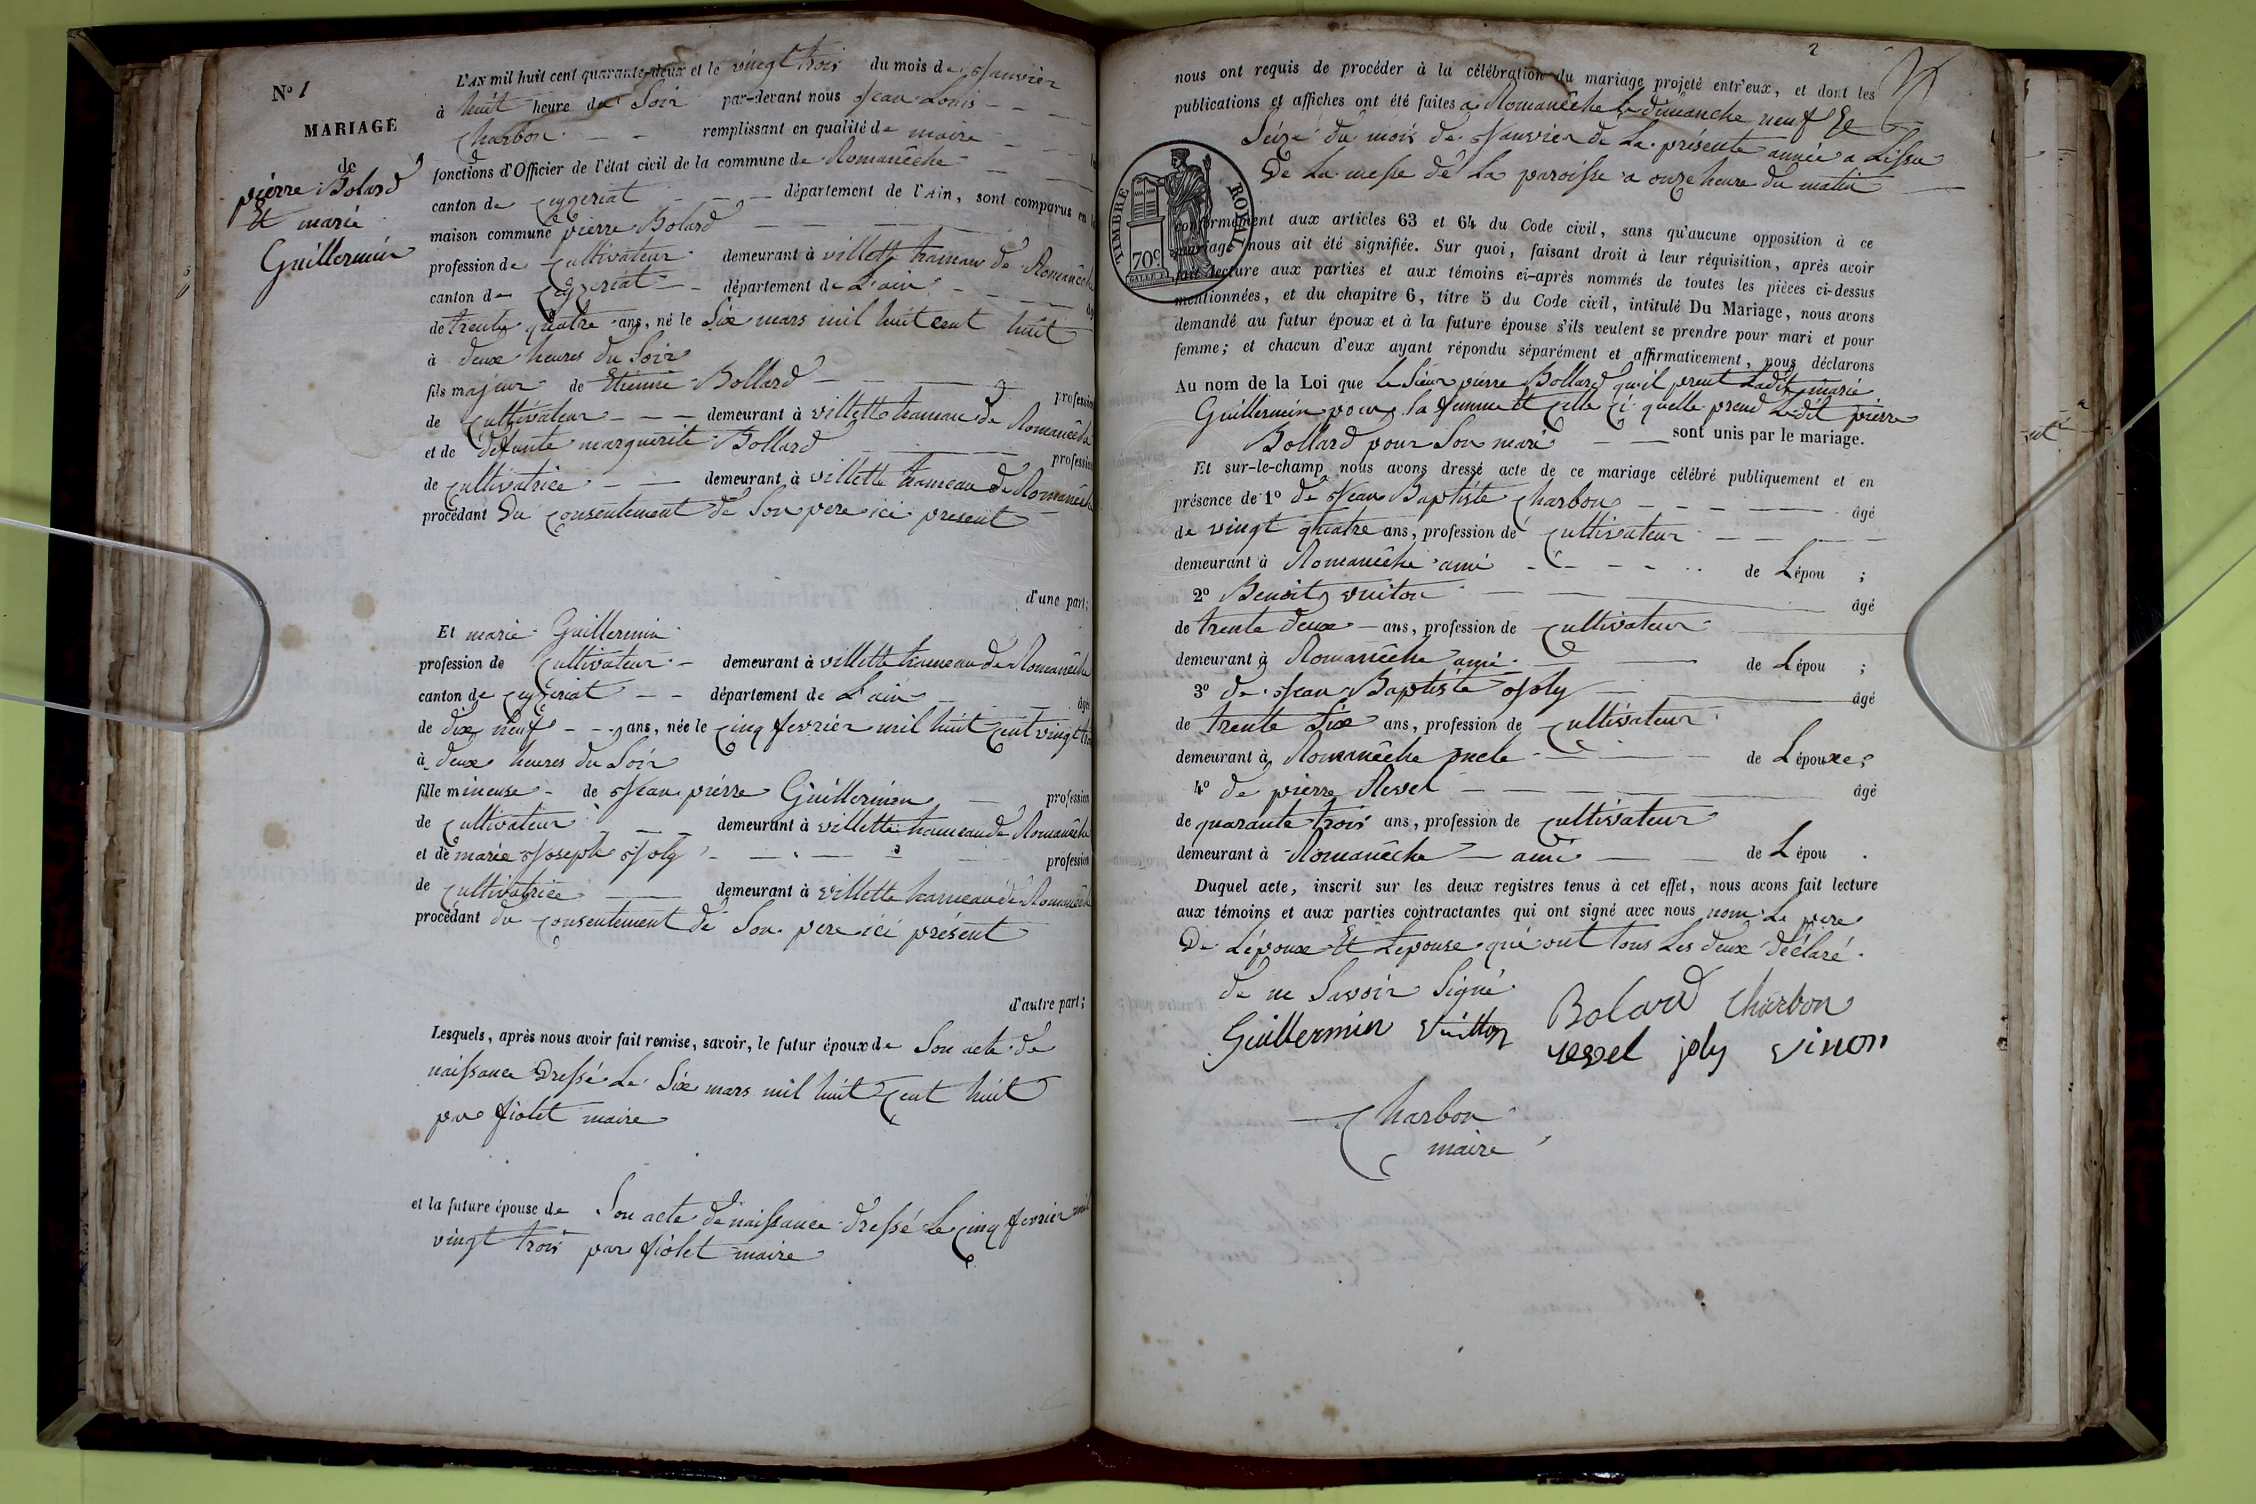 N° 1
MARIAGE
de
pierre Bolard
Et marie
Guillermin
L'AN mil huit cent quarante-deux et le vingt trois du mois de Janvier
à huit heure du Soir par-devant nous Jean Louis
Charbon remplissant en qualité de maire les
fonctions d'Officier de l'état civil de la commune de Romanêche
canton de Ceyzeriat département de l'Ain, sont comparus en la
maison commune pierre Bolard
profession de Cultivateur demeurant à villette hameau de Romanêche
canton de Ceyzeriat département de L'ain âgé
de trente quatre ans, né le Six mars mil huit cent huit
à deux heures du Soir
fils majeur de Etienne Bollard profession
de Cultivateur demeurant à villette hameau de Romanêche
et de défunte marguerite Bollard profession
de Cultivatrice demeurant à villette hameau de Romanêche
procédant Du Consentement de Son pere ici present
d'une part;
Et marie Guillermin
profession de Cultivateur demeurant à villette hameau de Romanêche
canton de Ceyzeriat département de L'ain âgée
de dix neuf ans, née le Cinq fevrier mil huit Cent vingt trois
à deux heures du Soir
fille mineuse de Jean pierre Guillermin profession
de Cultivateur demeurant à villette hameau de Romanêche
et de marie Joseph Joly profession
de Cultivatrice demeurant à villette hameau de Romanêche
procédant du Consentement de Son pere ici présent
d'autre part;
Lesquels, après nous avoir fait remise, savoir, le futur époux de Son acte de
naissance Dressé Le Six mars mil huit Cent huit
par fiolet maire
et la future épouse de Son acte de naissance dressé Le Cinq fevrier mil
vingt trois par fiolet maire
2
nous ont requis de procéder à la célébration du mariage projeté entr'eux, et dont les
publications et affiches ont été faites a Romanêche Le dimanche neuf Et
Seize du mois de Janvier de La présente année a Lissu
De La messe de La paroisse a onze heure du matin
TIMBRE ROYAL
70c
conformément aux articles 63 et 64 du Code civil, sans qu'aucune opposition à ce
mariage nous ait été signifiée. Sur quoi, faisant droit à leur réquisition, après avoir
fait lecture aux parties et aux témoins ci-après nommés de toutes les pièces ci-dessus
mentionnées, et du chapitre 6, titre 5 du Code civil, intitulé Du Mariage, nous avons
demandé au futur époux et à la future épouse s'ils veulent se prendre pour mari et pour
femme; et chacun d'eux ayant répondu séparément et affirmativement, nous déclarons
Au nom de la Loi que Le Sieur pierre Bollard qu'il prent Ladite marie
Guillermin pour Sa femme Et Celle Ci quelle prend Ledit pierre
Bollard pour Son mari sont unis par le mariage.
Et sur-le-champ nous avons dressé acte de ce mariage célébré publiquement et en
présence de 1° de Jean Baptiste Charbon âgé
de vingt quatre ans, profession de Cultivateur
demeurant à Romanêche ami de L'épou ;
2° Benoit vuiton âgé
de trente deux ans, profession de Cultivateur
demeurant à Romanêche ami de L'épou ;
3° de Jean Baptiste Joly âgé
de trente Six ans, profession de Cultivateur
demeurant à Romanêche oncle de L'épouxe ;
4° de pierre Revel âgé
de quarante trois ans, profession de Cultivateur
demeurant à Romanêche ami de L'épou .
Duquel acte, inscrit sur les deux registres tenus à cet effet, nous avons fait lecture
aux témoins et aux parties contractantes qui ont signé avec nous nom Le pere
De L'époux Et Lepouse qui ont tous Les deux déclaré
de ne Savoir Signé
Guillermin Vuitton Bolard Charbon
revel joly vinon
Charbon
maire